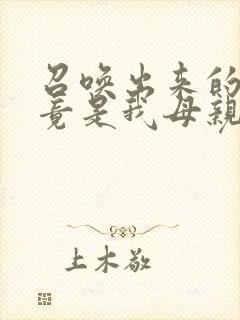 召唤出来的
竟是我母亲
上木敬